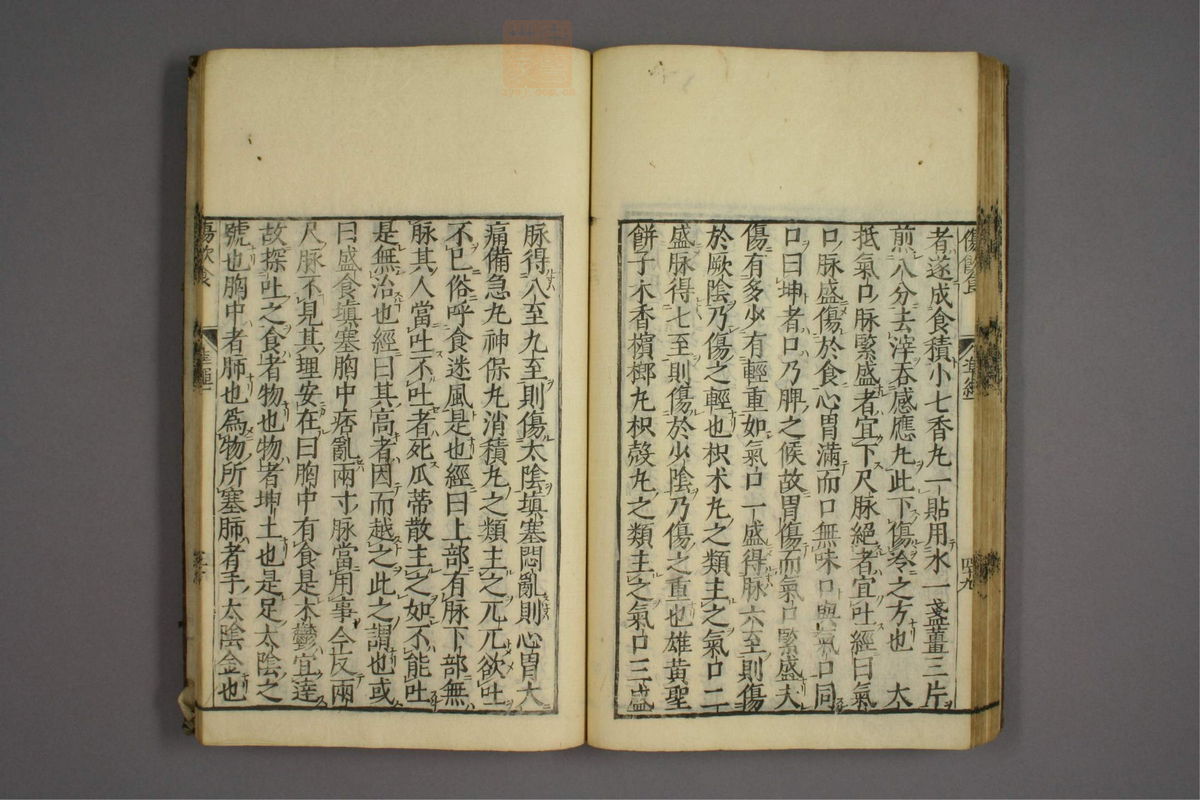 者遂成食積小七香丸一貼用水一盞薑三片
煎八分去滓吞感應丸此下傷冷之方也　大
抵氣口脉緊盛者宜下尺脉絕者宜吐經曰氣
口脉盛傷於食心胃滿而口無味口與氣口同
口曰坤者口乃脾之候故胃傷而氣口緊盛夫
傷有多少有輕重如氣口一盛得脉六至則傷
於厥陰乃傷之輕也枳朮丸之類主之氣口二
盛脉得七至則傷於少陰乃傷之重也雄黃聖
餅子木香檳榔丸枳殼丸之類主之氣口三盛
脉得八至九至則傷太陰填塞悶亂則心胃大
痛備急丸神保丸消積丸之類主之兀兀欲吐
不已俗呼食迷風是也經曰上部有脉下部無
脉其人當吐不吐者死瓜蒂散主之如不能吐
是無治也經曰其高者因而越之此之謂也或
曰盛食填塞胸中痞亂兩寸脉當用事今反兩
尺脉不見其理安在曰胸中有食是木鬱宜達
故探吐之食者物也物者坤土也是足太陰之
號也胸中者肺也為物所塞肺者手太陰金也
傷飲食
四十九
傷飲食